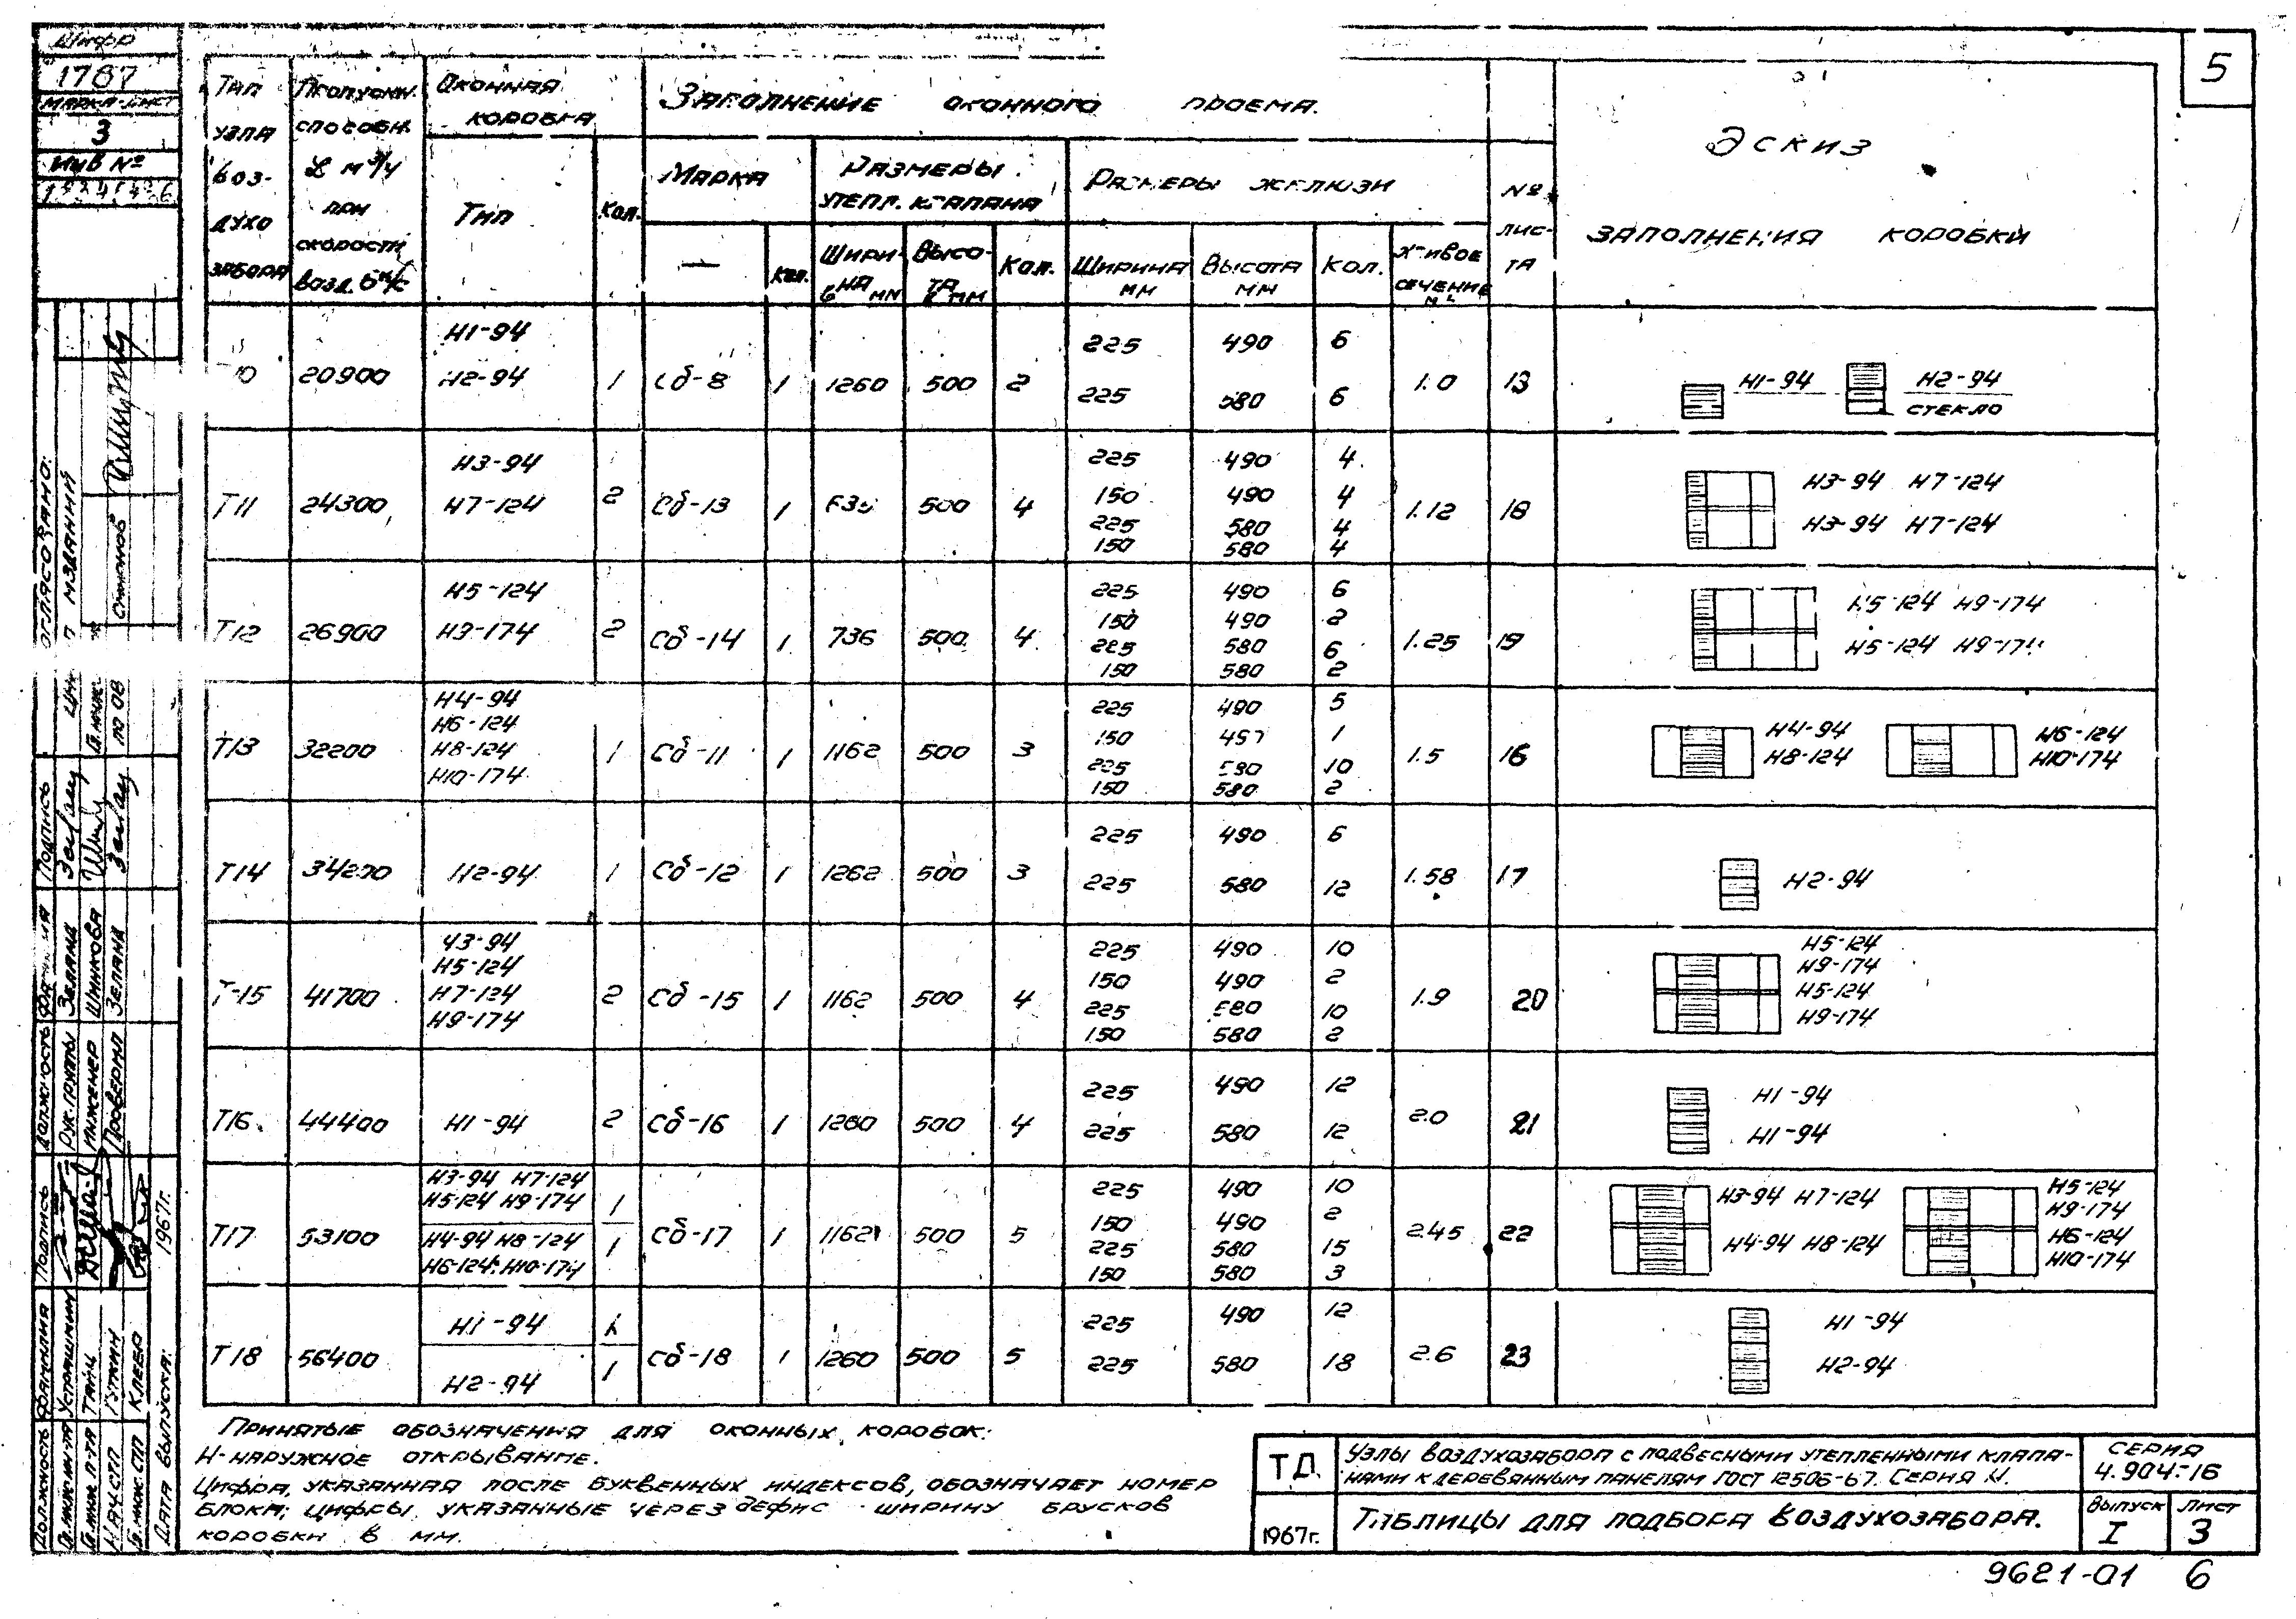 5
Шифр
1787
Марка-лист
3
Инв №
Тип узла воздухозабора
Пропускн. способн. L м³/ч при скорости возд. 6 м/с
Оконная коробка
Заполнение оконного проема.
№ листа
Эскиз заполнения коробки
Тип
Кол.
Марка
Размеры утепл. клапана
Размеры жалюзи
—
Кол.
Ширина в мм
Высота в мм
Кол.
Ширина мм
Высота мм
Кол.
Живое сечение м²
20900
Н1-94
Н2-94
1 Сб-8 1 1260 500 2
225 490 6
225 580 6
1.0 13
Н1-94
Н2-94
стекло
Т11 24300
Н3-94
Н7-124
2 Сб-13 1 500 4
225 490 4
150 490 4
225 580 4
150 580 4
1.12 18
Н3-94 Н7-124
Н3-94 Н7-124
Т12 26900
Н5-124
Н9-174
2 Сб-14 1 736 500 4
225 490 6
150 490 2
225 580 6
150 580 2
1.25 19
Н5-124 Н9-174
Н5-124 Н9-174
Т13 32200
Н4-94
Н6-124
Н8-124
Н10-174
1 Сб-11 1 1162 500 3
225 490 5
150 490 1
225 580 10
150 580 2
1.5 16
Н4-94
Н8-124
Н6-124
Н10-174
Т14 34200
Н2-94
1 Сб-12 1 1262 500 3
225 490 6
225 580 12
1.58 17
Н2-94
Т-15 41700
Н3-94
Н5-124
Н7-124
Н9-174
2 Сб-15 1 1162 500 4
225 490 10
150 490 2
225 580 10
150 580 2
1.9 20
Н5-124
Н9-174
Н5-124
Н9-174
Т16. 44400
Н1-94
2 Сб-16 1 1260 500 4
225 490 12
225 580 12
2.0 21
Н1-94
Н1-94
Т17 53100
Н3-94 Н7-124
Н5-124 Н9-174
1
Н4-94 Н8-124
Н6-124; Н10-174
1
Сб-17 1 1162 500 5
225 490 10
150 490 2
225 580 15
150 580 3
2.45 22
Н3-94 Н7-124
Н4-94 Н8-124
Н5-124
Н9-174
Н6-124
Н10-174
Т18 56400
Н1-94
1
Н2-94
1
Сб-18 1 1260 500 5
225 490 12
225 580 18
2.6 23
Н1-94
Н2-94
Принятые обозначения для оконных коробок:
Н-наружное открывание.
Цифра, указанная после буквенных индексов, обозначает номер
блока; цифры, указанные через дефис ширину брусков
коробки в мм.
ТД
1967г.
Узлы воздухозабора с подвесными утепленными клапа-
нами к деревянным панелям ГОСТ 12506-67. Серия Н.
Таблицы для подбора воздухозабора.
Серия
4.904-16
Выпуск
I
Лист
3
9621-01 6
Симонов
Должность Фамилия Подпись
Рук. группы Зелана
Инженер Шинкова
Проверил Зелана
Должность Фамилия Подпись
Гл. инж. ин-та Устрашкин
Гл. инж. п-та Тайц
Нач. СТП Гуткин
Гл. инж. СТП Клебв
Дата выпуска: 1967г.